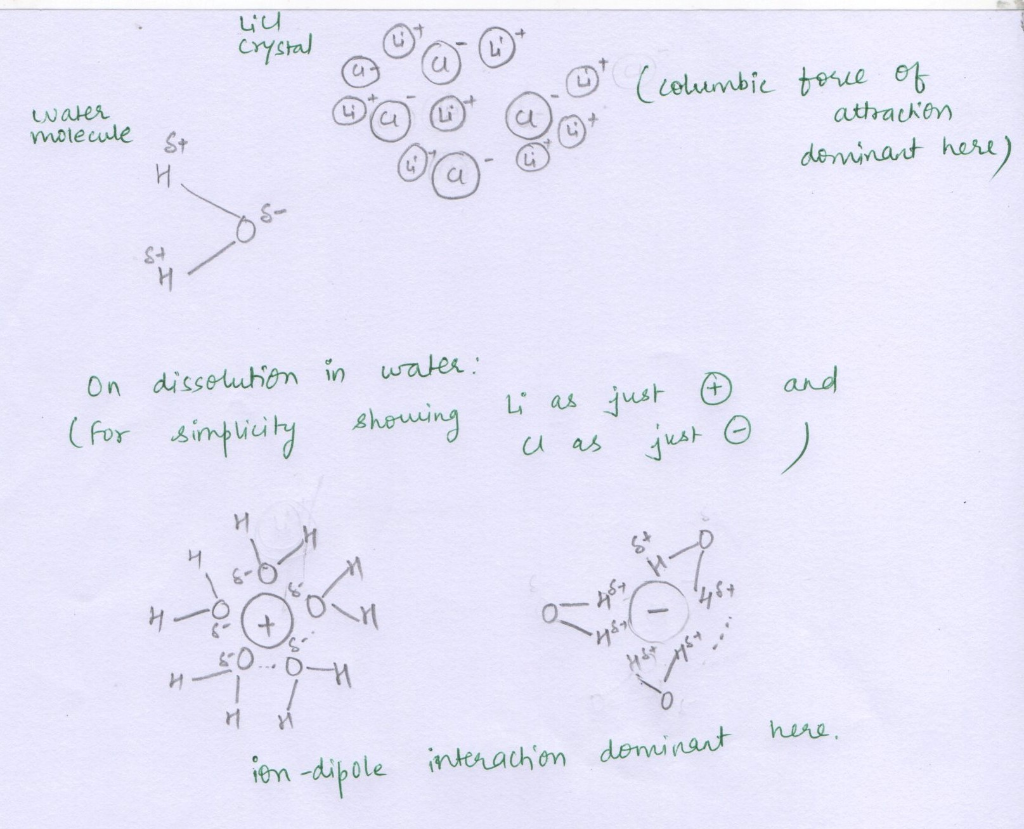 LiCl
crystal
Li+ Cl- Li+
Cl-
Li+ Cl- Li+ Cl- Li+
Li+
Li+ Cl- Li+
(columbic force of
attraction
dominant here)
water
molecule
δ+
H
O δ-
δ+
H
On dissolution in water:
(for simplicity showing Li as just ⊕ and
Cl as just ⊖ )
H H
H δ- O δ- H
H O + O H
δ- δ-
δ- O ... O H
H
H H
δ+ O
H
O H δ+ - H δ+
H δ+
H δ+ H δ+
O
ion-dipole interaction dominant here.